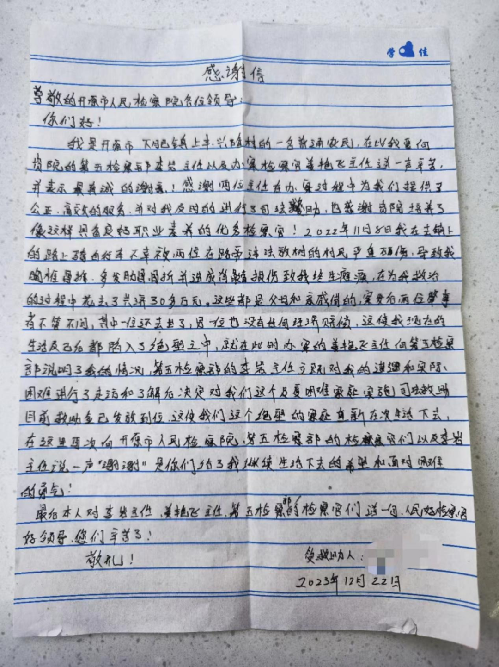 学 佳
感谢信
尊敬的开原市人民检察院各位领导:
你们好!
我是开原市下肥镇上年兴隆村的一名普通农民,在此我要向
贵院的第五检察部李岩主任以及办案检察官姜艳飞主任说一声辛苦
并表示最真诚的谢意!感谢两位主任在办案过程中为我们提供了
公正、高效的服务,并对我及时的进行了司法救助,也感谢贵院培养了
像这样具有良好职业素养的优秀检察官!2022年11月8日我在去铺上
的路上骑自行车不幸被两位在路旁违法砍树的村民严重砸伤,导致我
胸椎骨折、多发肋骨骨折并造成脊髓损伤致我终生瘫痪,在为我救治
的过程中花去了共计30多万元。这些都是父母和亲戚借的,案发后两位肇事
者不管不问,其中一位还去世了,另一位也没有任何经济赔偿,这使我治疗的
生活及己都陷入了绝望之中,就在此时办案的姜艳飞主任向第五检察
部说明了我的情况,第五检察部的李岩主任立刻对我的遭遇和实际
困难进行了走访和了解后决定对我们这个及其困难家庭实施司法救助
目前救助金已发放到位,这使我们这个绝望的家庭重新在次生活下去,
在这里再次向开原市人民检察院,第五检察部的检察官们以及李岩
主任说一声"谢谢"是你们给了我继续生活下去的希望和面对困难
的勇气!
最后本人对李岩主任、姜艳飞主任、第五检察部的检察官们道一句,人民好检察官
好领导,您们辛苦了!
敬礼!
受救助人:
2023年12月22日